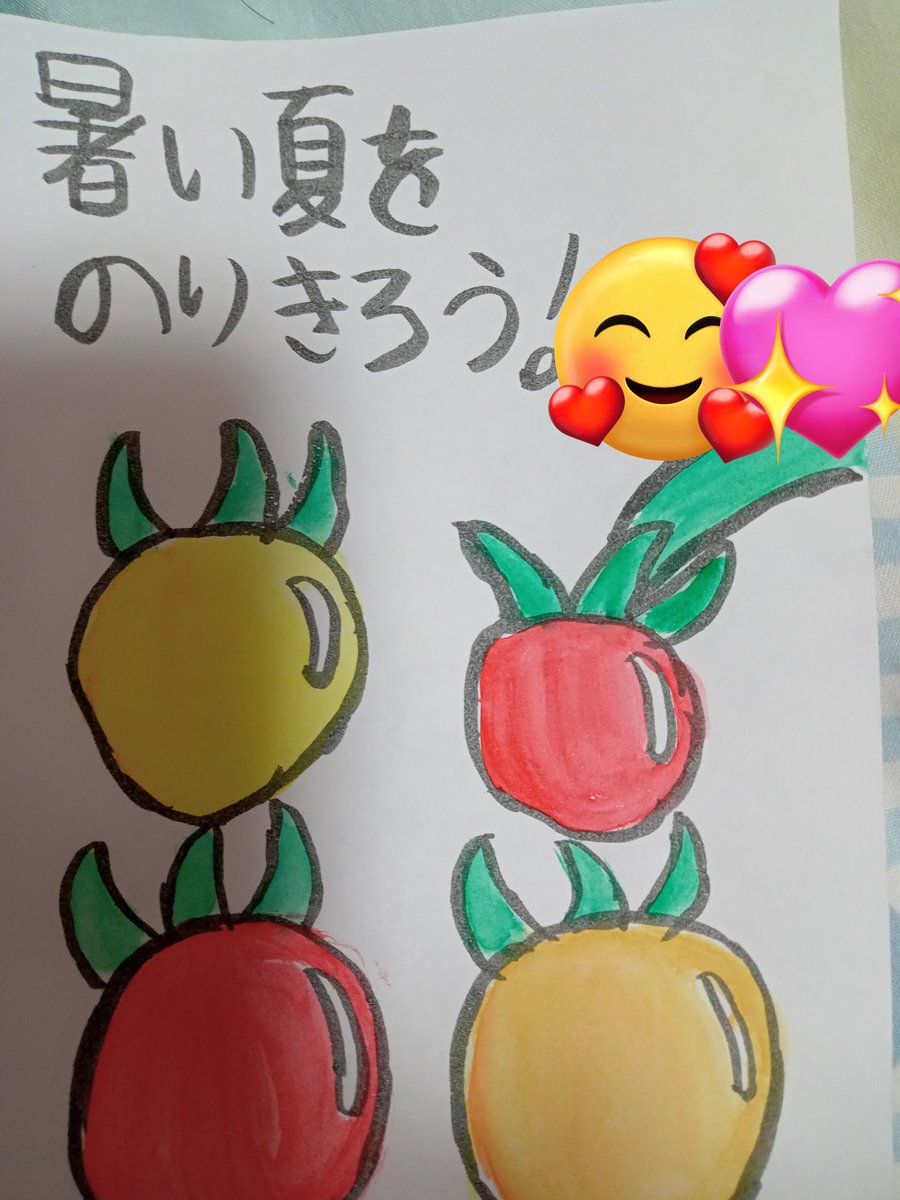 暑い夏を
のりきろう!